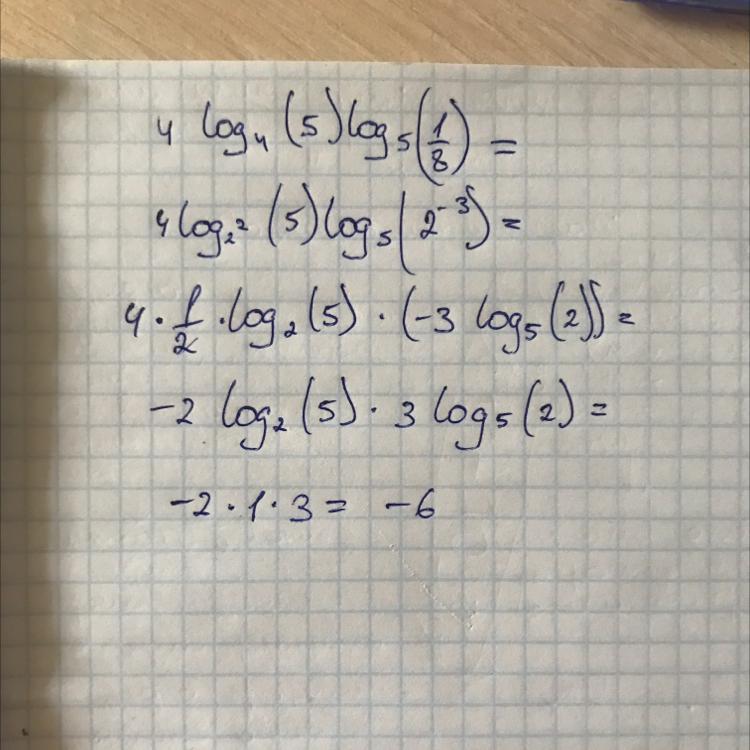 4 log₄ (5) log₅ (1/8) =
4 log₂² (5) log₅ (2⁻³) =
4 · 1/2 · log₂ (5) · (-3 log₅ (2)) =
-2 log₂ (5) · 3 log₅ (2) =
-2 · 1 · 3 = -6